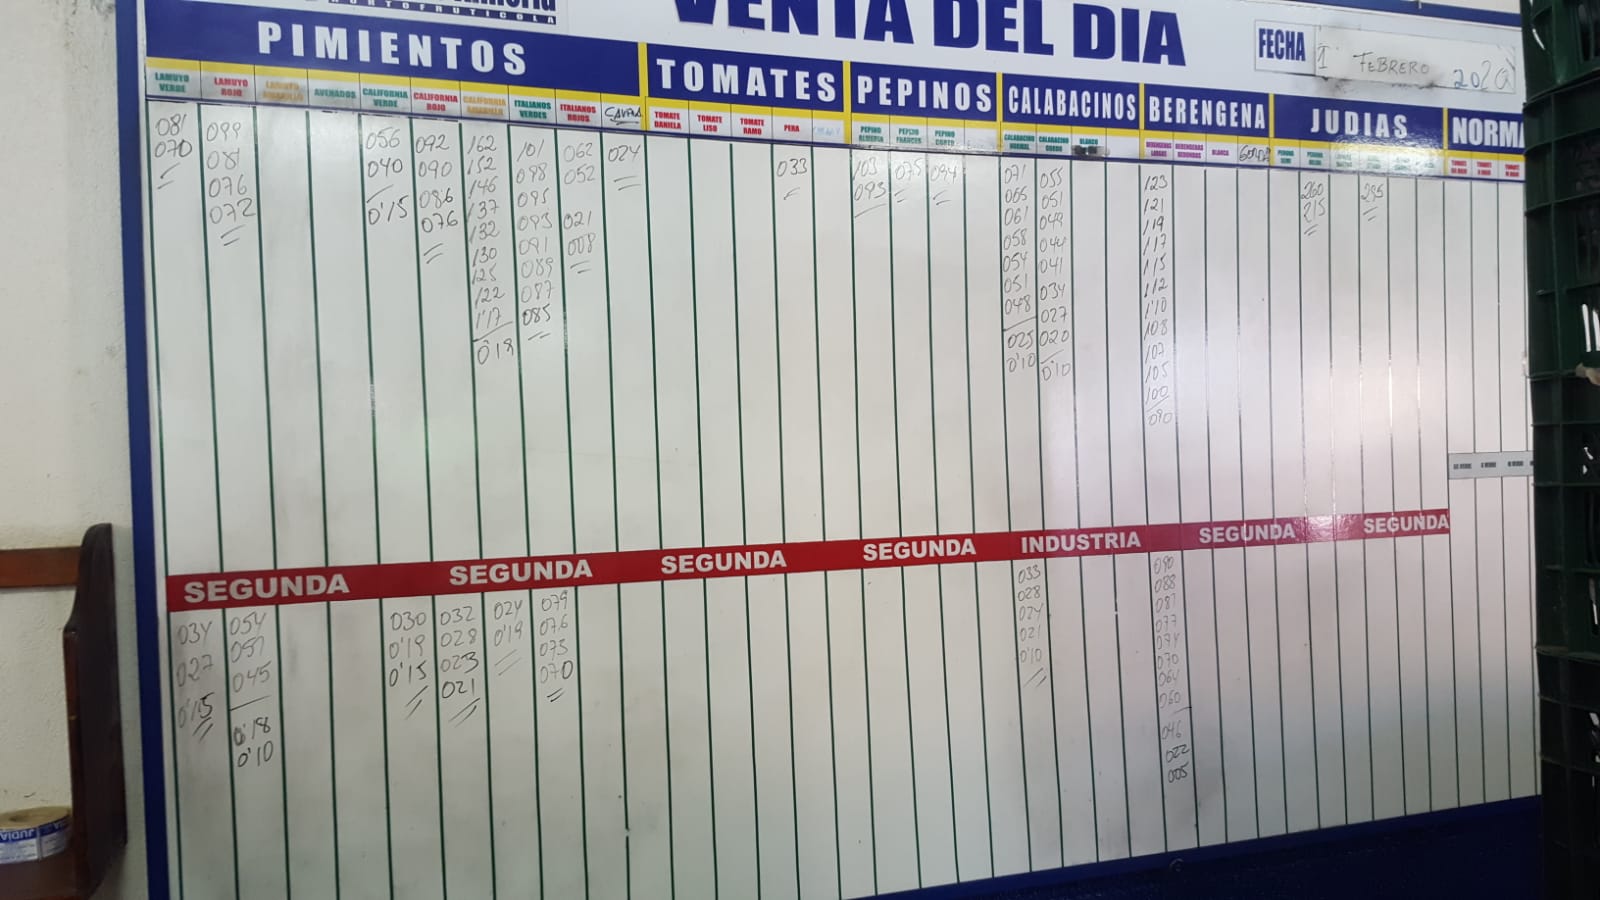 HORTOFRUTICOLA
VENTA DEL DIA
FECHA 1 FEBRERO
PIMIENTOS
TOMATES
PEPINOS
CALABACINOS
BERENGENA
JUDIAS
NORMA
LAMUYO VERDE
LAMUYO ROJO
LAMUYO AMARILLO
CALIFORNIA VERDE
CALIFORNIA ROJO
CALIFORNIA AMARILLO
ITALIANOS VERDES
ITALIANOS ROJOS
TOMATE DANIELA
TOMATE LISO
TOMATE RAMO
PERA
PEPINO ALMERIA
PEPINO FRANCES
PEPINO CORTO
CALABACINO NORMAL
CALABACINO GORDO
BLANCO
BERENGENAS LARGAS
BERENGENAS REDONDAS
BLANCA
GORDA
081
070
099
081
076
072
056
040
0'15
092
090
086
076
162
152
146
137
132
130
125
122
1'17
0'18
101
098
095
093
091
089
087
085
062
052
021
008
024
033
103
093
075
094
071
065
061
058
054
051
048
025
0'10
055
051
049
044
041
034
027
020
0'10
123
121
119
117
115
112
1'10
108
107
105
100
090
260
215
285
SEGUNDA
SEGUNDA
SEGUNDA
SEGUNDA
INDUSTRIA
SEGUNDA
SEGUNDA
034
027
0'15
054
051
045
0'18
0'10
030
0'19
0'15
032
028
023
021
024
0'19
079
076
073
070
033
028
024
021
0'10
090
088
081
077
074
070
064
060
046
022
005
JUDIA